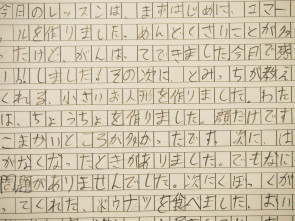 今日のレッスンは、まずはじめに、コマー
ルを作りました。めんどくさいことが多
たけど、がんばてできました今日で
しました！その次に、とみっちが教え
くれた、小さいお人形を作りました。わた
は、ちょうちょを作りました。顔だけです
こまかいところが多かったです。次に、は
がなくなったときがありました。でもなに
問題がありませんでした。次にぼくが
ってくれた、ドウナツを食べました。おい